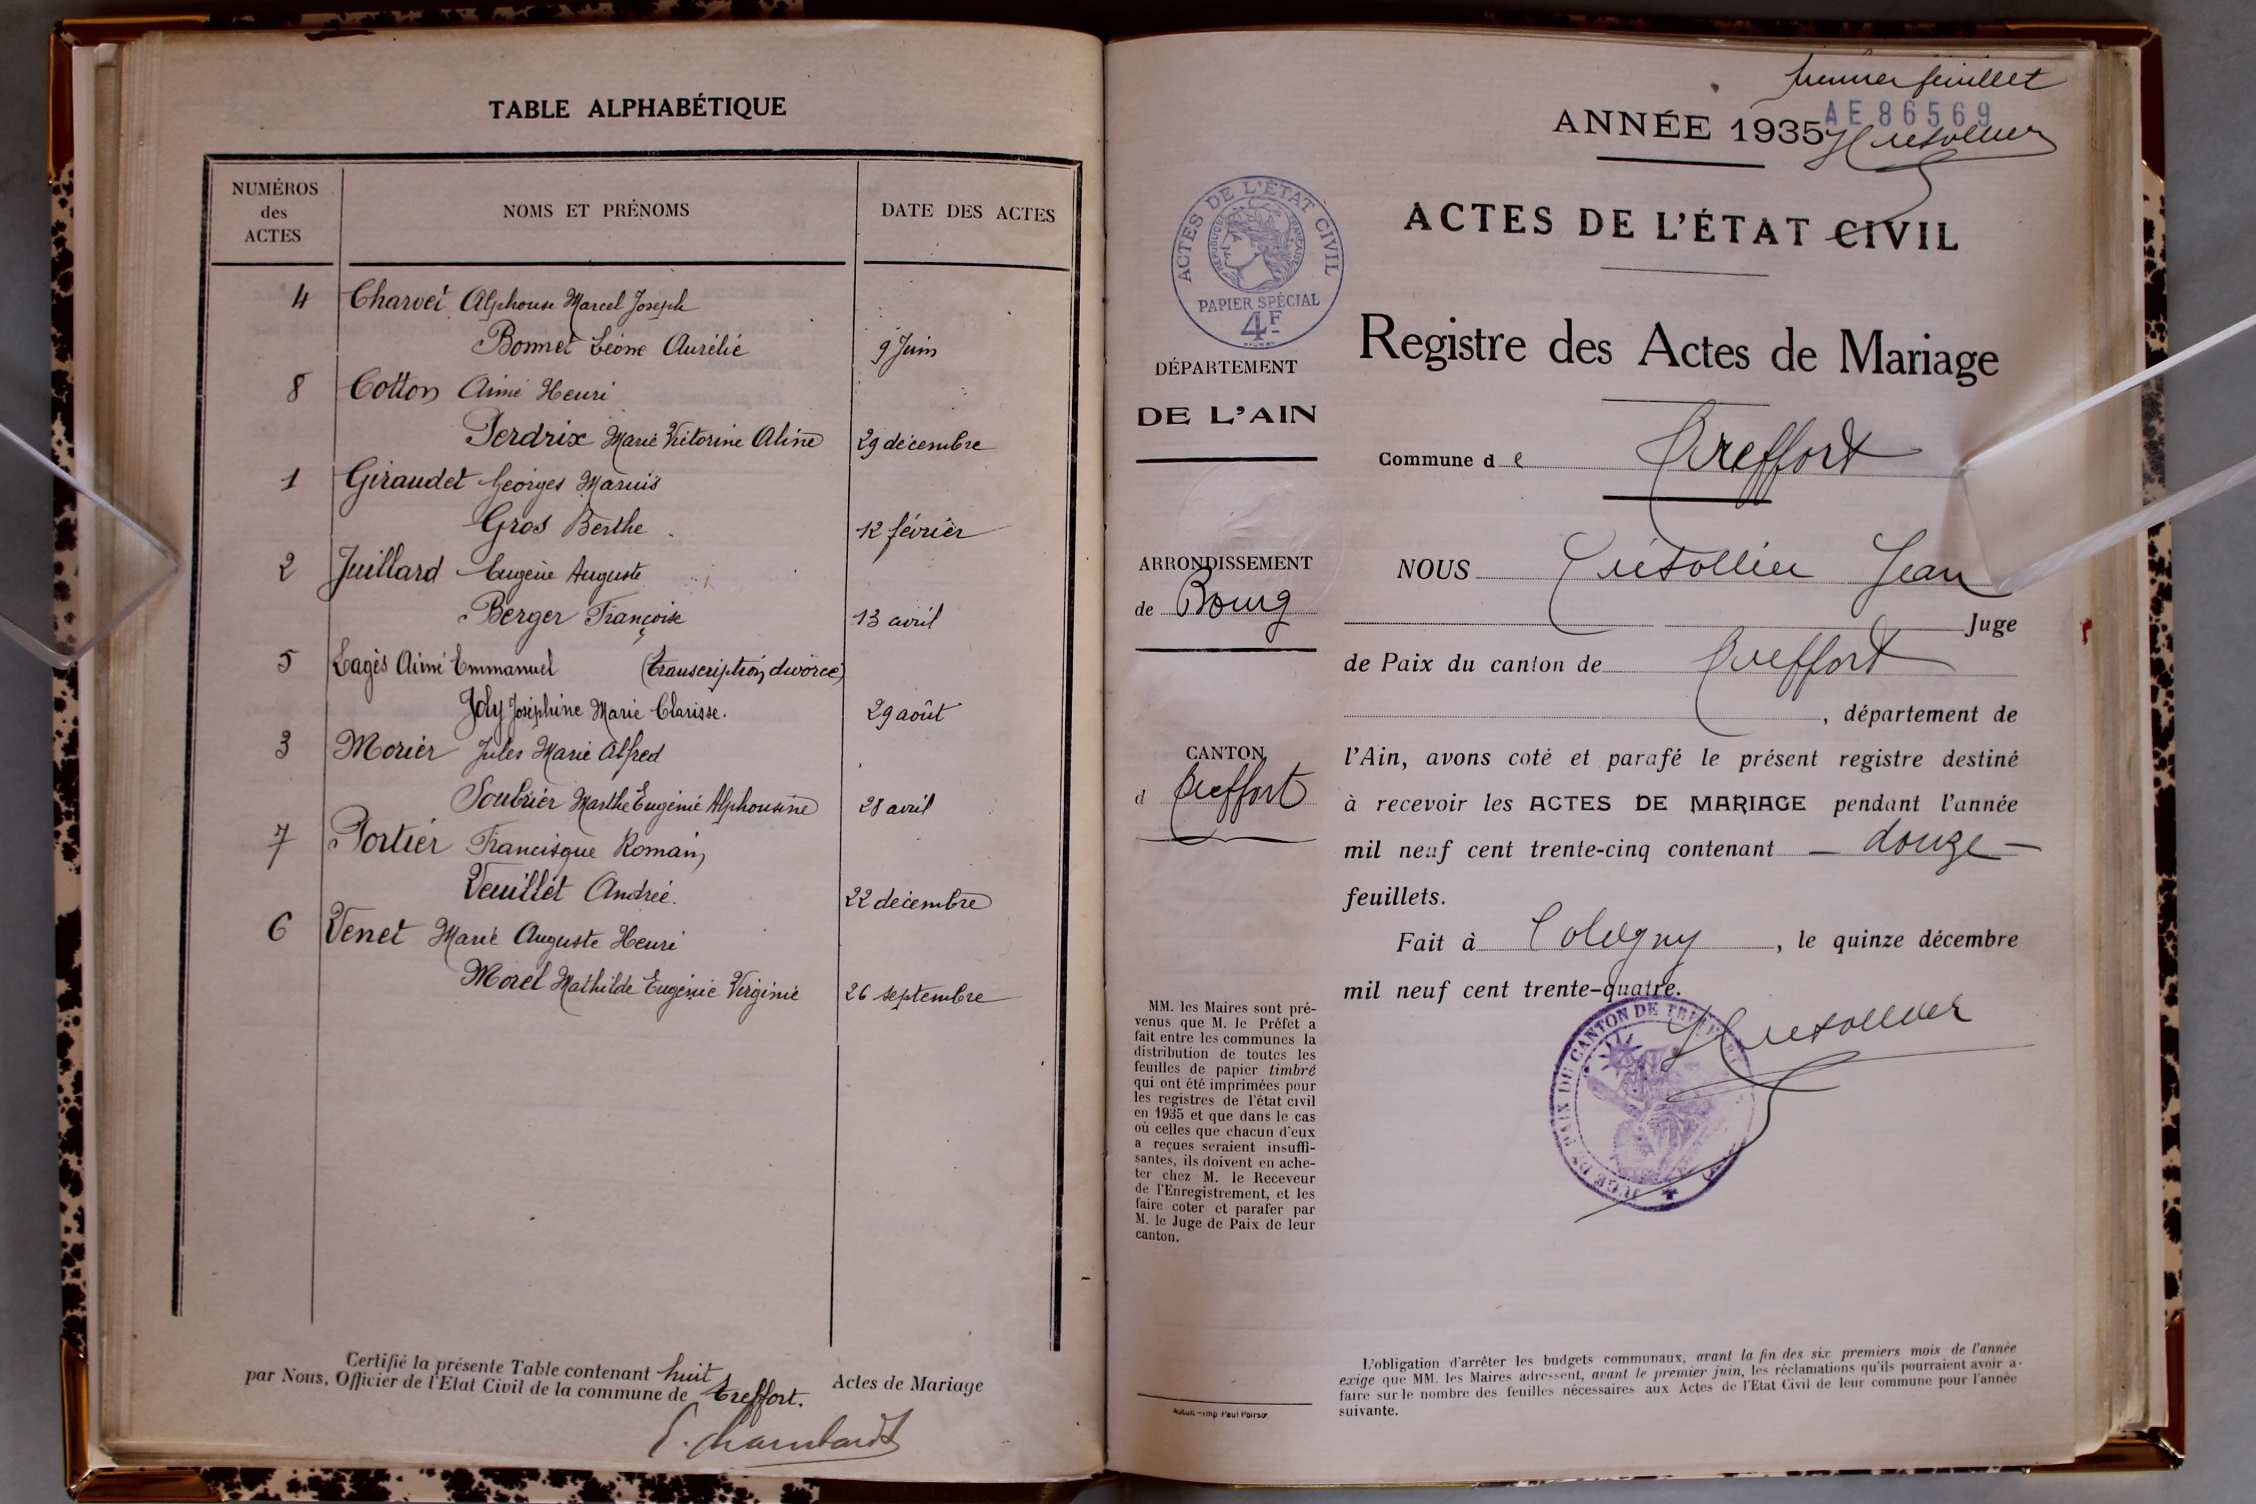 TABLE ALPHABÉTIQUE
NUMÉROS des ACTES
NOMS ET PRÉNOMS
DATE DES ACTES
4 Charvet Alphonse Marcel Joseph
Bonnet Léone Aurélie 9 Juin
8 Cotton Aimé Henri
Perdrix Marie Victorine Aline 29 décembre
1 Giraudet Georges Marius
Gros Berthe 12 février
2 Juillard Eugène Auguste
Berger Françoise 13 avril
5 Lagès Aimé Emmanuel (transcription divorce)
Joly Joséphine Marie Clarisse. 29 août
3 Morier Jules Marie Alfred
Soubrier Marthe Eugénie Alphonsine 28 avril
7 Portier Francisque Romain
Veuillet Andrée. 22 décembre
6 Venet Marie Auguste Henri
Morel Mathilde Eugénie Virginie 26 septembre
Certifié la présente Table contenant huit Actes de Mariage
par Nous, Officier de l'Etat Civil de la commune de Treffort.
premier feuillet
AE 86569
ANNÉE 1935
ACTES DE L'ÉTAT CIVIL
ACTES DE L'ÉTAT CIVIL
RÉPUBLIQUE FRANÇAISE
PAPIER SPÉCIAL
4F
Registre des Actes de Mariage
DÉPARTEMENT
DE L'AIN
Commune de Treffort
ARRONDISSEMENT
de Bourg
CANTON
d Treffort
NOUS Jean
Juge
de Paix du canton de Treffort
, département de
l'Ain, avons coté et parafé le présent registre destiné
à recevoir les ACTES DE MARIAGE pendant l'année
mil neuf cent trente-cinq contenant — douze —
feuillets.
Fait à Coligny, le quinze décembre
mil neuf cent trente-quatre.
JUGE DE PAIX DU CANTON DE
MM. les Maires sont pré-
venus que M. le Préfet a
fait entre les communes la
distribution de toutes les
feuilles de papier timbré
qui ont été imprimées pour
les registres de l'état civil
en 1935 et que dans le cas
où celles que chacun d'eux
a reçues seraient insuffi-
santes, ils doivent en ache-
ter chez M. le Receveur
de l'Enregistrement, et les
faire coter et parafer par
M. le Juge de Paix de leur
canton.
L'obligation d'arrêter les budgets communaux, avant la fin des six premiers mois de l'année
exige que MM. les Maires adressent, avant le premier juin, les réclamations qu'ils pourraient avoir à
faire sur le nombre des feuilles nécessaires aux Actes de l'Etat Civil de leur commune pour l'année
suivante.